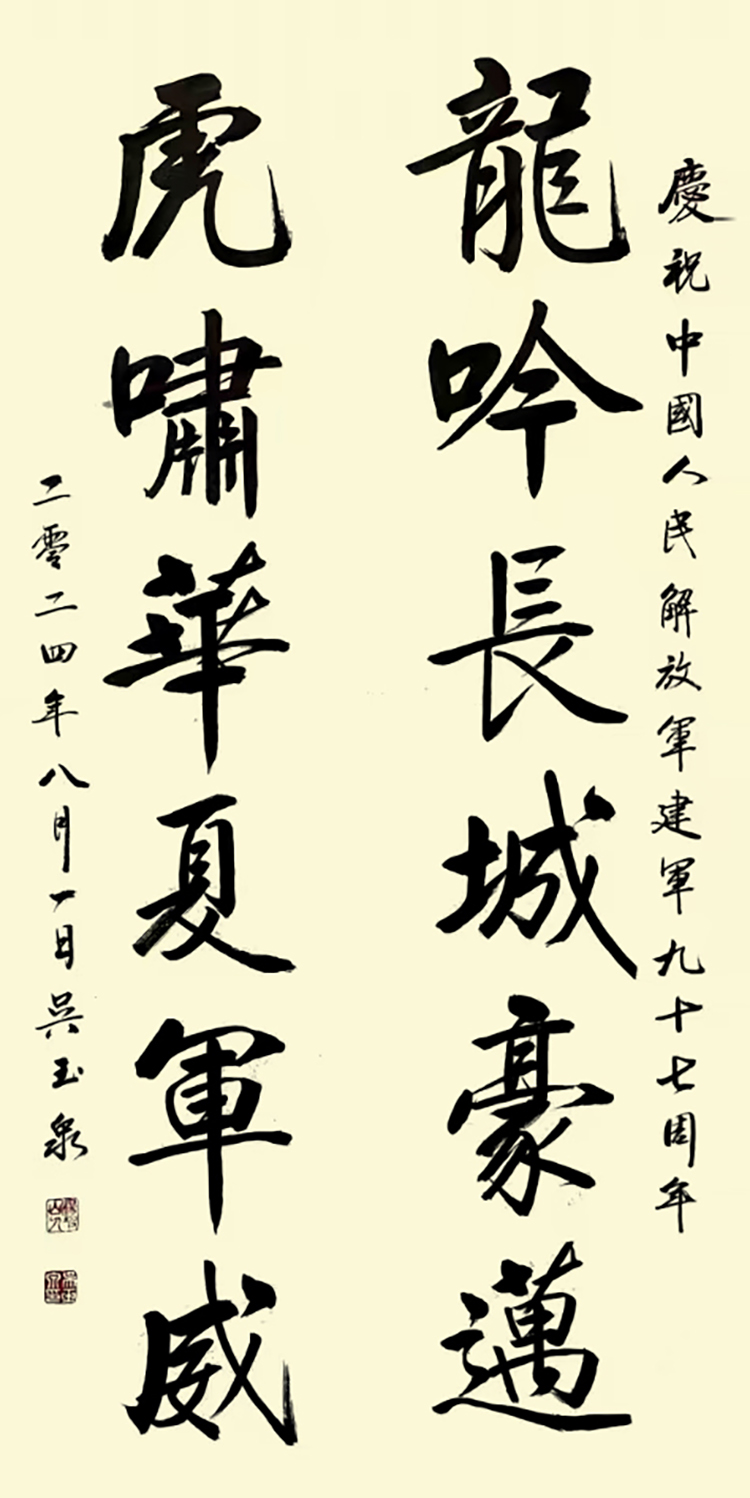 慶祝中國人民解放軍建軍九十七周年
龍吟長城豪邁
虎嘯華夏軍威
二零二四年八月一日吳玉泉